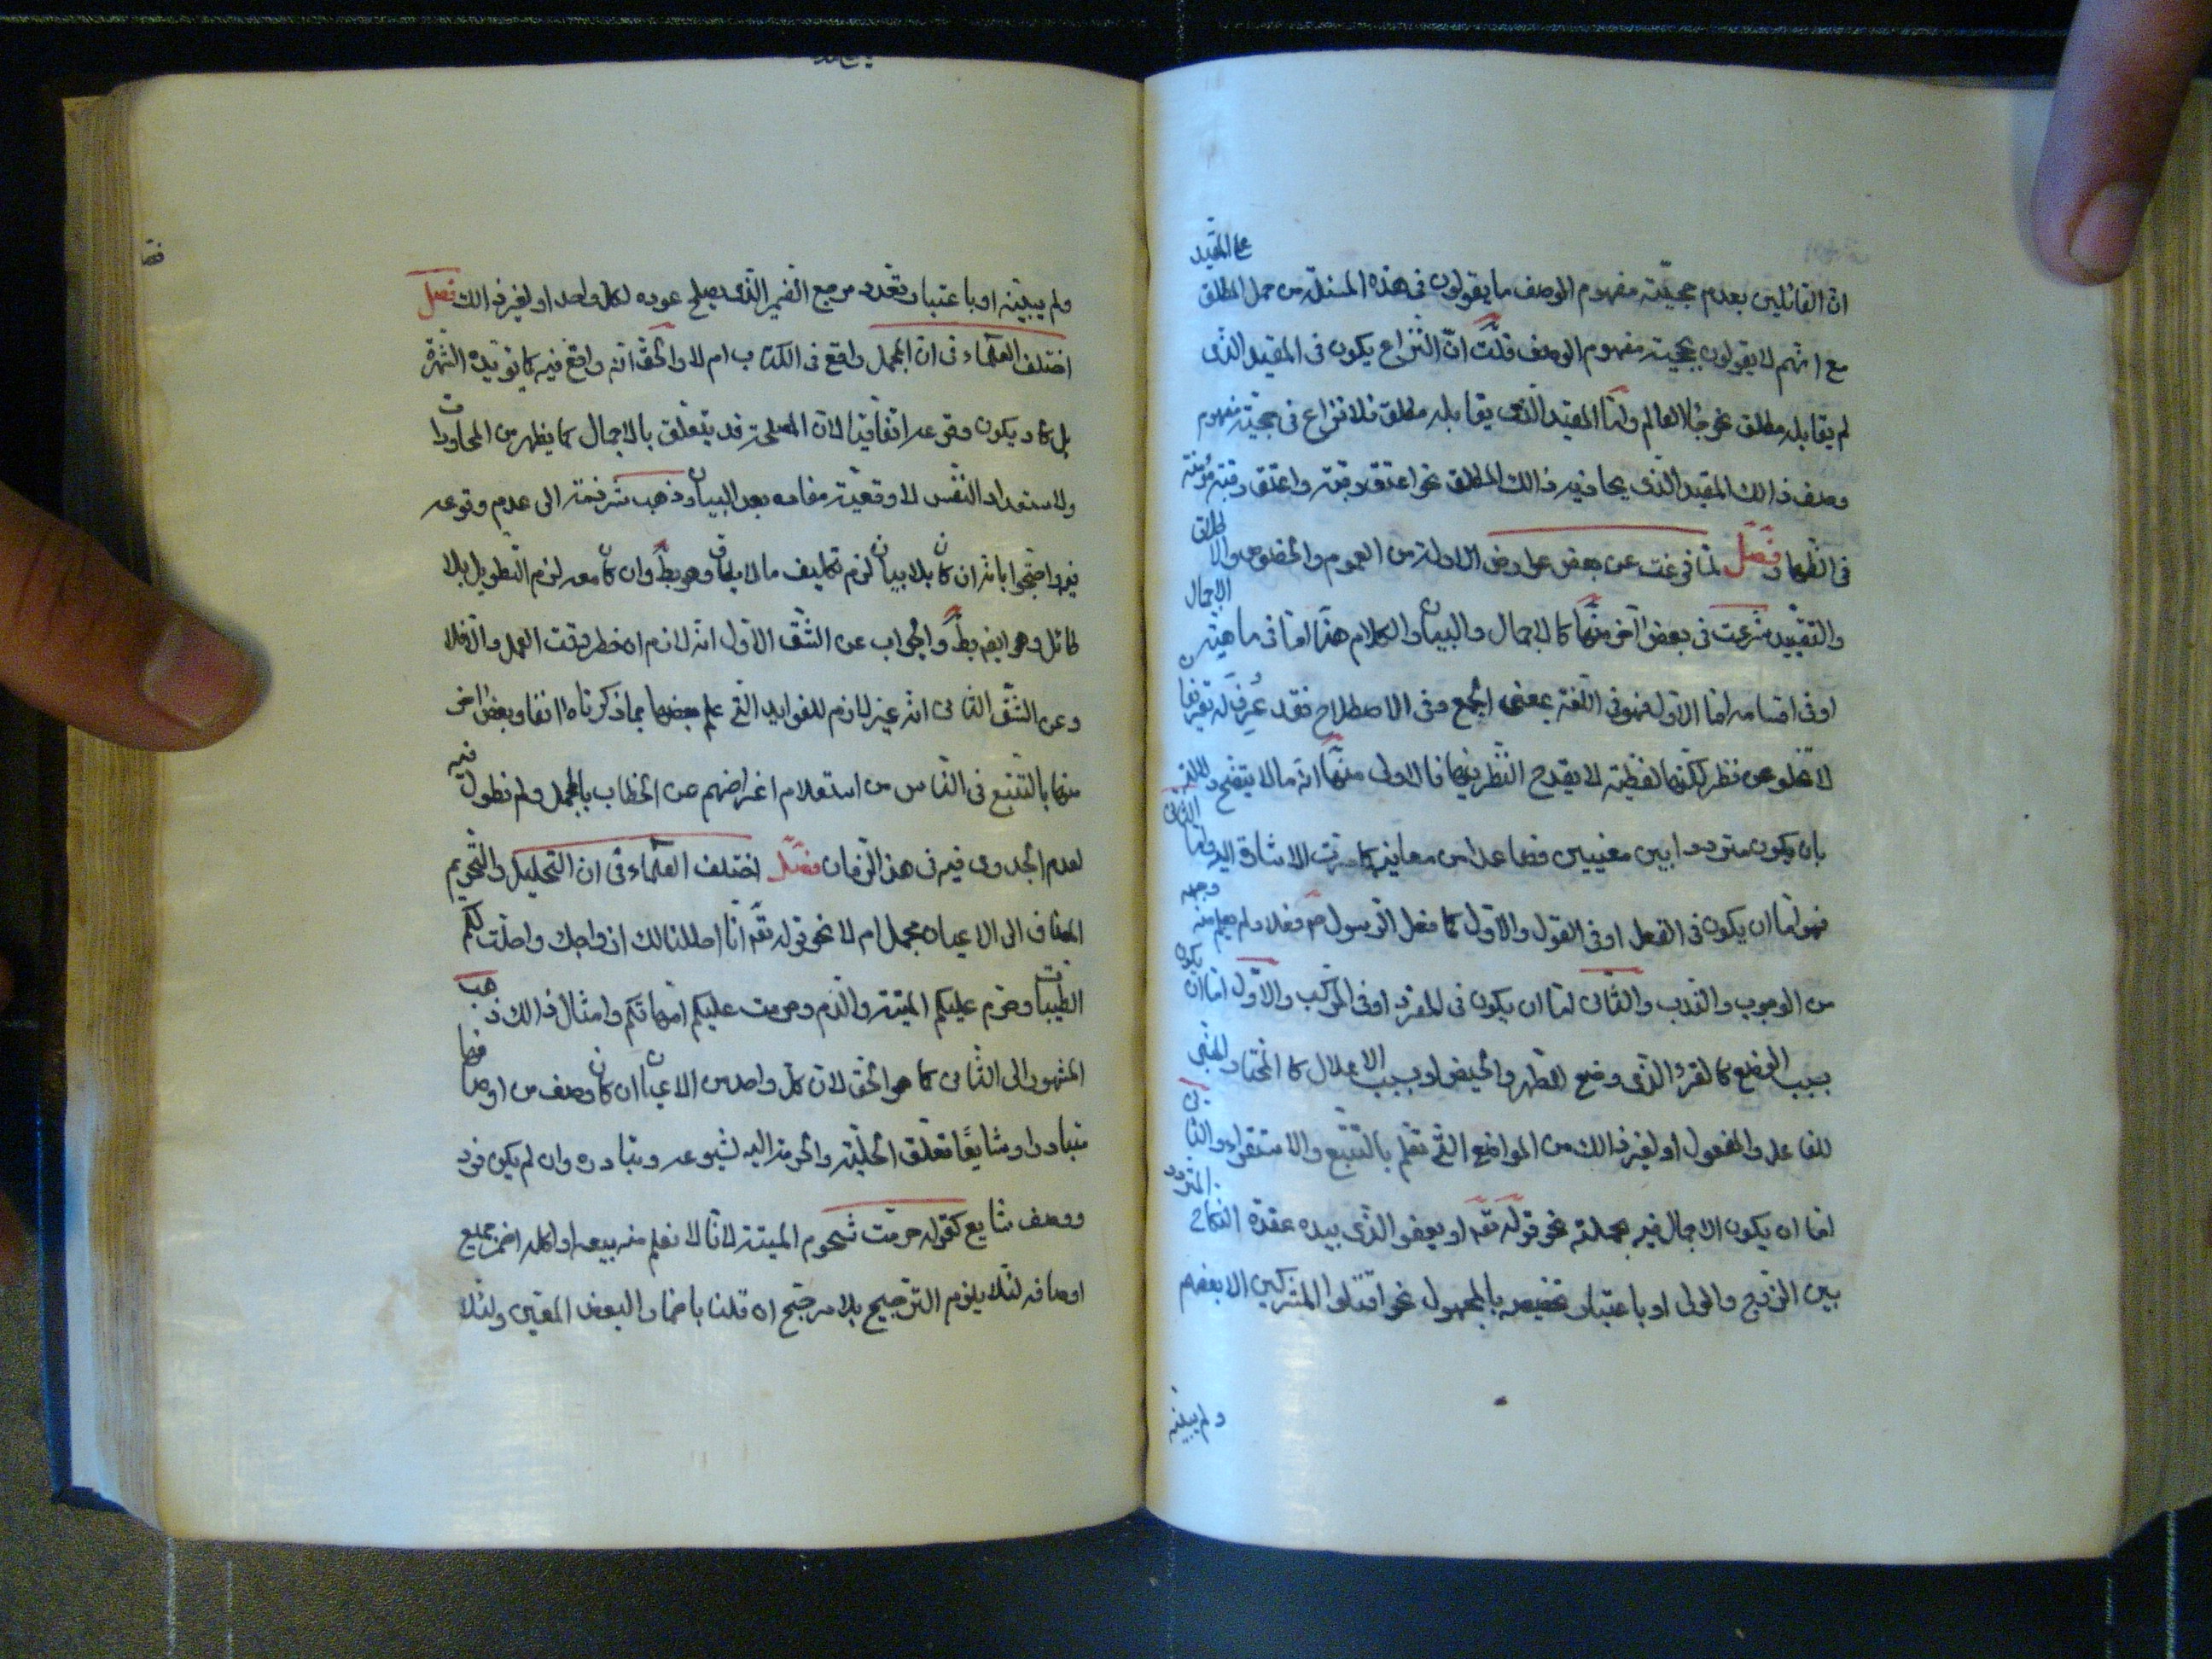 ان القائلين بعدم حجيّته مفهوم الوصف ما يقولون فى هذه المسئلة من حمل المطلق على المقيد
مع انّهم لا يقولون بحجية مفهوم الوصف قلت انّ النزاع يكون فى المقيد الذى
لم يقابله مطلق نحو جائنا العالم وامّا المقيد الذى يقابله مطلق فلا نزاع فى حجيّة مفهوم
وصف ذالك المقيد الذى يحاذيه ذالك المطلق نحو اعتق رقبة واعتق رقبة مؤمنة
فى الظهار فصل لمّا فرغت عن بعض عوارض الادلة من العموم والخصوص والاطلاق
والتقييد شرعت فى بعض آخر منها كالاجمال والبيان والكلام هنا امّا فى ماهية الاجمال
او فى اقسامه امّا الاول فهو فى اللّغة بمعنى الجمع وفى الاصطلاح فقد عُرِفَ له تعريفان
لا تخلو عن نظر لكنّها لفظية لا يقدح النّظر فيها فالاولى منها انّه ما لا يتضح دلالته
بان يكون مترددا بين معنيين فصاعدا من معانيه كما مرت الاشارة اليه وامّا الثانى
فهو امّا ان يكون فى الفعل او فى القول والاوّل كما فعل الرسول ص فعلا ولم يعلم منه وجهه
من الوجوب والندب والثّانى امّا ان يكون فى المفرد او فى المركب والاوّل امّا ان يكون
بسبب الوضع كالقرء الذى وضع للطّهر والحيض او بسبب الاعلال كالمختار المبنى
للفاعل والمفعول او لغير ذالك من المواضع التى تعلم بالتتبع والاستقراء والثانى
امّا ان يكون الاجمال فيه بجملته نحو قوله تعه او يعفو الذى بيده عقدة النكاح المتردد
بين الزوج والولى او باعتبار تخصيصه بالمجهول نحو اقتلوا المشركين الا بعضهم
ولم يبيّنه
ولم يبيّنه او باعتبار تعدد مرجع الضمير الذى يصلح عوده لكل واحد او لغير ذالك فصل
اختلف العلماء فى ان المجمل واقع فى الكتاب ام لا والحق انه واقع فيه كما تؤيده الشهرة
بل كاد يكون وقوعه اتفاقيا لان المصلحة قد يتعلق بالاجمال كما يظهر من المحاورات
ولاستعداد النفس لا وقعيّة مفاده بعد البيان وذهب شرذمة الى عدم وقوعه
فيه واحتجوا بانه ان كان بلا بيان لزم تكليف ما لا يطاق وهو بط وان كان معه لزم التطويل بلا
طائل وهو ايضا بط والجواب عن الشق الاول انه لازم ان خطر وقت العمل والا فلا
وعن الشق الثانى انّه غير لازم للفوايد التى علم بعضها بما ذكرناه انفا وبعض اخر
منها بالتتبع فى الناس من استعلام اغراضهم من الخطاب بالمجمل ولم نطول فيه
لعدم الجدوى فيه فى هذا الزمان فصل اختلف العلماء فى ان التحليل والتحريم
المضاف الى الاعيان مجمل ام لا نحو قوله تعه انّا احللنا لك ازواجك واحلت لكم
الطيبات وحرّم عليكم الميتة والدم وحرمت عليكم امّهاتكم وامثال ذالك ذهب
المشهور الى الثّانى كما هو الحق لان كل واحد من الاعيان ان كان وصف من اوصافها
متبادرا وشايعا تعلق الحلية والحرمة اليه لشيوعه وتبادره وان لم يكن فرد
ووصف شايع كقوله حرمت شحوم الميتة لانّا لا نعلم منه بيعه او اكله اضمر جميع
اوصافه لئلا يلزم الترجيح بلا مرجّح ان قلنا باضمار البعض المعين ولئلا